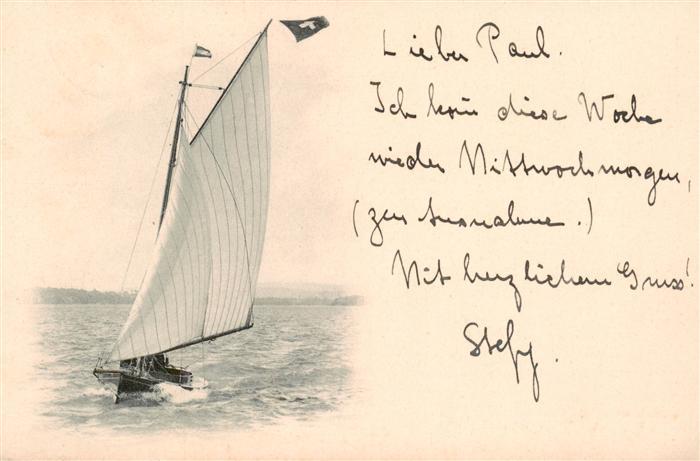 Lieber Paul.
Ich kom diese Woche
wieder Mittwochmorgen,
(zur Ausnahme.)
Mit herzlichem Gruss!
Steffy.